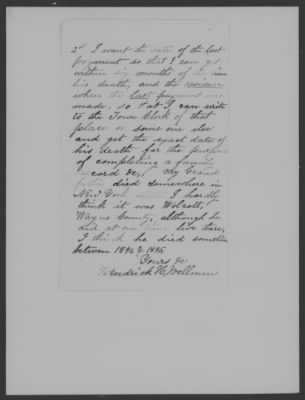 2d I want the date of the last
payment so that I can get
within six months of
his death, and the residence
when the last payment was
made, so that I can write
to the Town Clerk of that
place or some one else
and get the exact date of
his death for the purpose
of completing a family
record &c; My Grand
father died somewhere in
New York State I hardly
think it was Wolcott,
Wayne County, although he
did at one time live there,
I think he died sometime
between 1840 & 1845
Yours &c
Hendrick H. Wellman